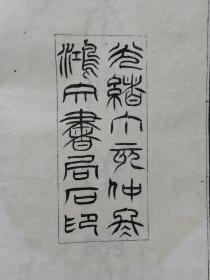 光緒丁亥仲冬
鴻文書局石印